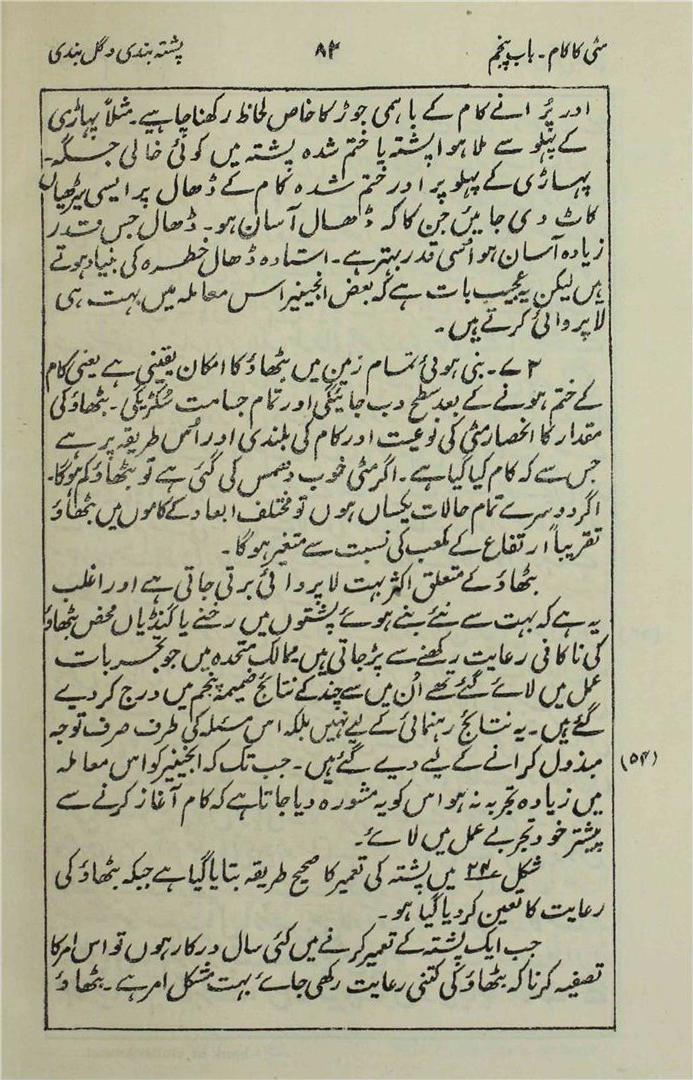 مٹی کا کام - باب پنجم ۸۳ پشتہ بندی و گل بندی
اور پُرانے کام کے باہمی جوڑ کا خاص لحاظ رکھنا چاہیے۔ مثلاً پہاڑی
کے پہلو سے ملا ہوا پشتہ یا ختم شدہ پشتہ میں کوئی خالی جگہ۔
پہاڑی کے پہلو پر اور ختم شدہ کام کے ڈھال پر ایسی سیڑھیاں
کاٹ دی جایئں جن کا کہ ڈھال آسان ہو۔ ڈھال جس قدر
زیادہ آسان ہو اُسی قدر بہتر ہے۔ استادہ ڈھال خطرہ کی بنیاد ہوتے
ہیں لیکن یہ عجیب بات ہے کہ بعض انجینیر اس معاملہ میں بہت ہی
لاپروائی کرتے ہیں۔
۷۲۔ بنی ہوئی تمام زمین میں بٹھاؤ کا امکان یقینی ہے یعنی کام
کے ختم ہونے کے بعد سطح دب جائیگی اور تمام جسامت سُکڑیگی۔ بٹھاؤ کی
مقدار کا انحصار مٹی کی نوعیت اور کام کی بلندی اور اُس طریقہ پر ہے
جس سے کہ کام کیا گیا ہے۔ اگر مٹی خوب دھمس کی گئی ہے تو بٹھاؤ کم ہوگا۔
اگر دوسرے تمام حالات یکساں ہوں تو مختلف ابعاد کے کاموں میں بٹھاؤ
تقریباً ارتفاع کے مکعب کی نسبت سے متغیر ہوگا۔
بٹھاؤ کے متعلق اکثر بہت لاپروائی برتی جاتی ہے اور اغلب
یہ ہے کہ بہت سے نئے بنے ہوئے پشتوں میں رخنے یا گنڈیاں محض بٹھاؤ
کی ناکافی رعایت رکھنے سے پڑ جاتی ہیں ممالک متحدہ میں جو تجربات
عمل میں لائے گئے تھے اُن میں سے چند کے نتائج ضمیمہ پنجم میں درج کر دیے
گئے ہیں۔ یہ نتائج رہنمائی کے لیے نہیں بلکہ اس مسئلہ کی طرف صرف توجہ
مبذول کرانے کے لیے دیے گئے ہیں۔ جب تک کہ انجینیر کو اس معاملہ (۵۴)
میں زیادہ تجربہ نہ ہو اس کو یہ مشورہ دیا جاتا ہے کہ کام آغاز کرنے سے
پیشتر خود تجربے عمل میں لائے۔
شکل ۲۴ میں پشتہ کی تعمیر کا صحیح طریقہ بتایا گیا ہے جبکہ بٹھاؤ کی
رعایت کا تعین کر دیا گیا ہو۔
جب ایک پشتہ کے تعمیر کرنے میں کئی سال درکار ہوں تو اس امر کا
تصفیہ کرنا کہ بٹھاؤ کی کتنی رعایت رکھی جائے بہت مشکل امر ہے۔ بٹھاؤ